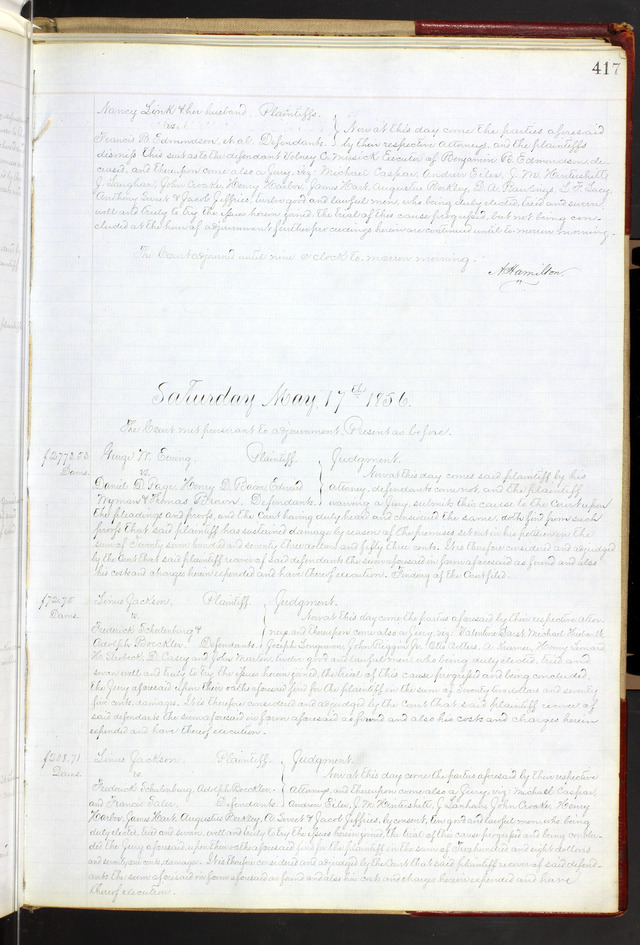 417
Nancy Link & her husband, Plaintiffs.
vs. } Now at this day come the parties aforesaid
Francis B. Edmondson, et al. Defendants. by their respective Attorneys, and the plaintiffs
dismiss this suit as to the defendant Volney C. Musick Executor of Benjamin Edmondson, de-
ceased, and thereupon come also a Jury, viz: Michael Caspar, Andrew Eiler, J. M.
J. Langham, John Crooke, Henry Harlow, James Hart, Augustus Beckley, D. A. Rawlings, L. F. Lacy,
Anthony Sweet & Jacob Jeffries, twelve good and lawful men, who being duly elected, tried and sworn
well and truly to try the issues herein joined, the trial of this cause progressed, but not being con-
cluded at the hour of adjournment further proceedings herein are continued until to morrow morning.
The Court adjourned until nine o'clock to-morrow morning.
A Hamilton
Saturday May, 17th 1856.
The Court met pursuant to adjournment, Present as before.
$2773.53 W. Ewing, Plaintiff. } Judgment.
Dams. vs. Now at this day comes said plaintiff by his
Daniel D. Page, Henry D. Bacon, Edward attorney, defendants come not, and the plaintiff
Wyman & Thomas Brown, Defendants. waiving a Jury, submits this cause to the Court upon
the pleadings and proofs, and the Court having duly heard and considered the same, doth find from such
proofs that said plaintiff has sustained damage by reason of the premises set out in his petition in the
sum of Twenty seven hundred and seventy three dollars and fifty three cents. It is therefore considered and adjudged
by the Court that said plaintiff recover of said defendants the sum aforesaid in form aforesaid as found and also
his costs and charges herein expended and have thereof execution. Finding of the Court filed.
$72.75 Linus Jackson, Plaintiff. } Judgment.
Dams. vs. Now at this day come the parties aforesaid by their respective Attor-
Frederick Schulenburg & neys and thereupon come also a Jury, viz: Valentine Michael
Adolph Boeckler, Defendants. Joseph Songerman, John Riggin Jr. Otto A. Kramer, Henry
D. Casey and John Martin, twelve good and lawful men, who being duly elected, tried and
sworn well and truly to try the issues herein joined, the trial of this cause progressed and being concluded,
the Jury aforesaid upon their oaths aforesaid find for the plaintiff in the sum of Seventy two dollars and seventy
five cents, damages. It is therefore considered and adjudged by the Court that said plaintiff recover of
said defendants the sum aforesaid in form aforesaid as found and also his costs and charges herein
expended and have thereof execution.
$208.71 Linus Jackson, Plaintiff. } Judgment.
Dams. vs. Now at this day come the parties aforesaid by their respective
Frederick Schulenburg, Adolph Boeckler, Attorneys, and thereupon come also a Jury, viz: Michael Caspar,
and Francis Saler, Defendants. Andrew Eiler, J. M. J. Lanham, John Crooke, Henry
Harlow, James Hart, Augustus Beckley, A. Sweet & Jacob Jeffries, by consent, ten good and lawful men who being
duly elected, tried and sworn, well and truly to try the issues herein joined, the trial of this cause progressed and being conclu-
ded the Jury aforesaid, upon their oaths aforesaid find for the plaintiff in the sum of Two hundred and eight dollars
and seventy one cents, damages. It is therefore considered and adjudged by the Court that said plaintiff recover of said defend-
ants the sum aforesaid in form aforesaid as found and also his costs and charges herein expended and have
thereof execution.